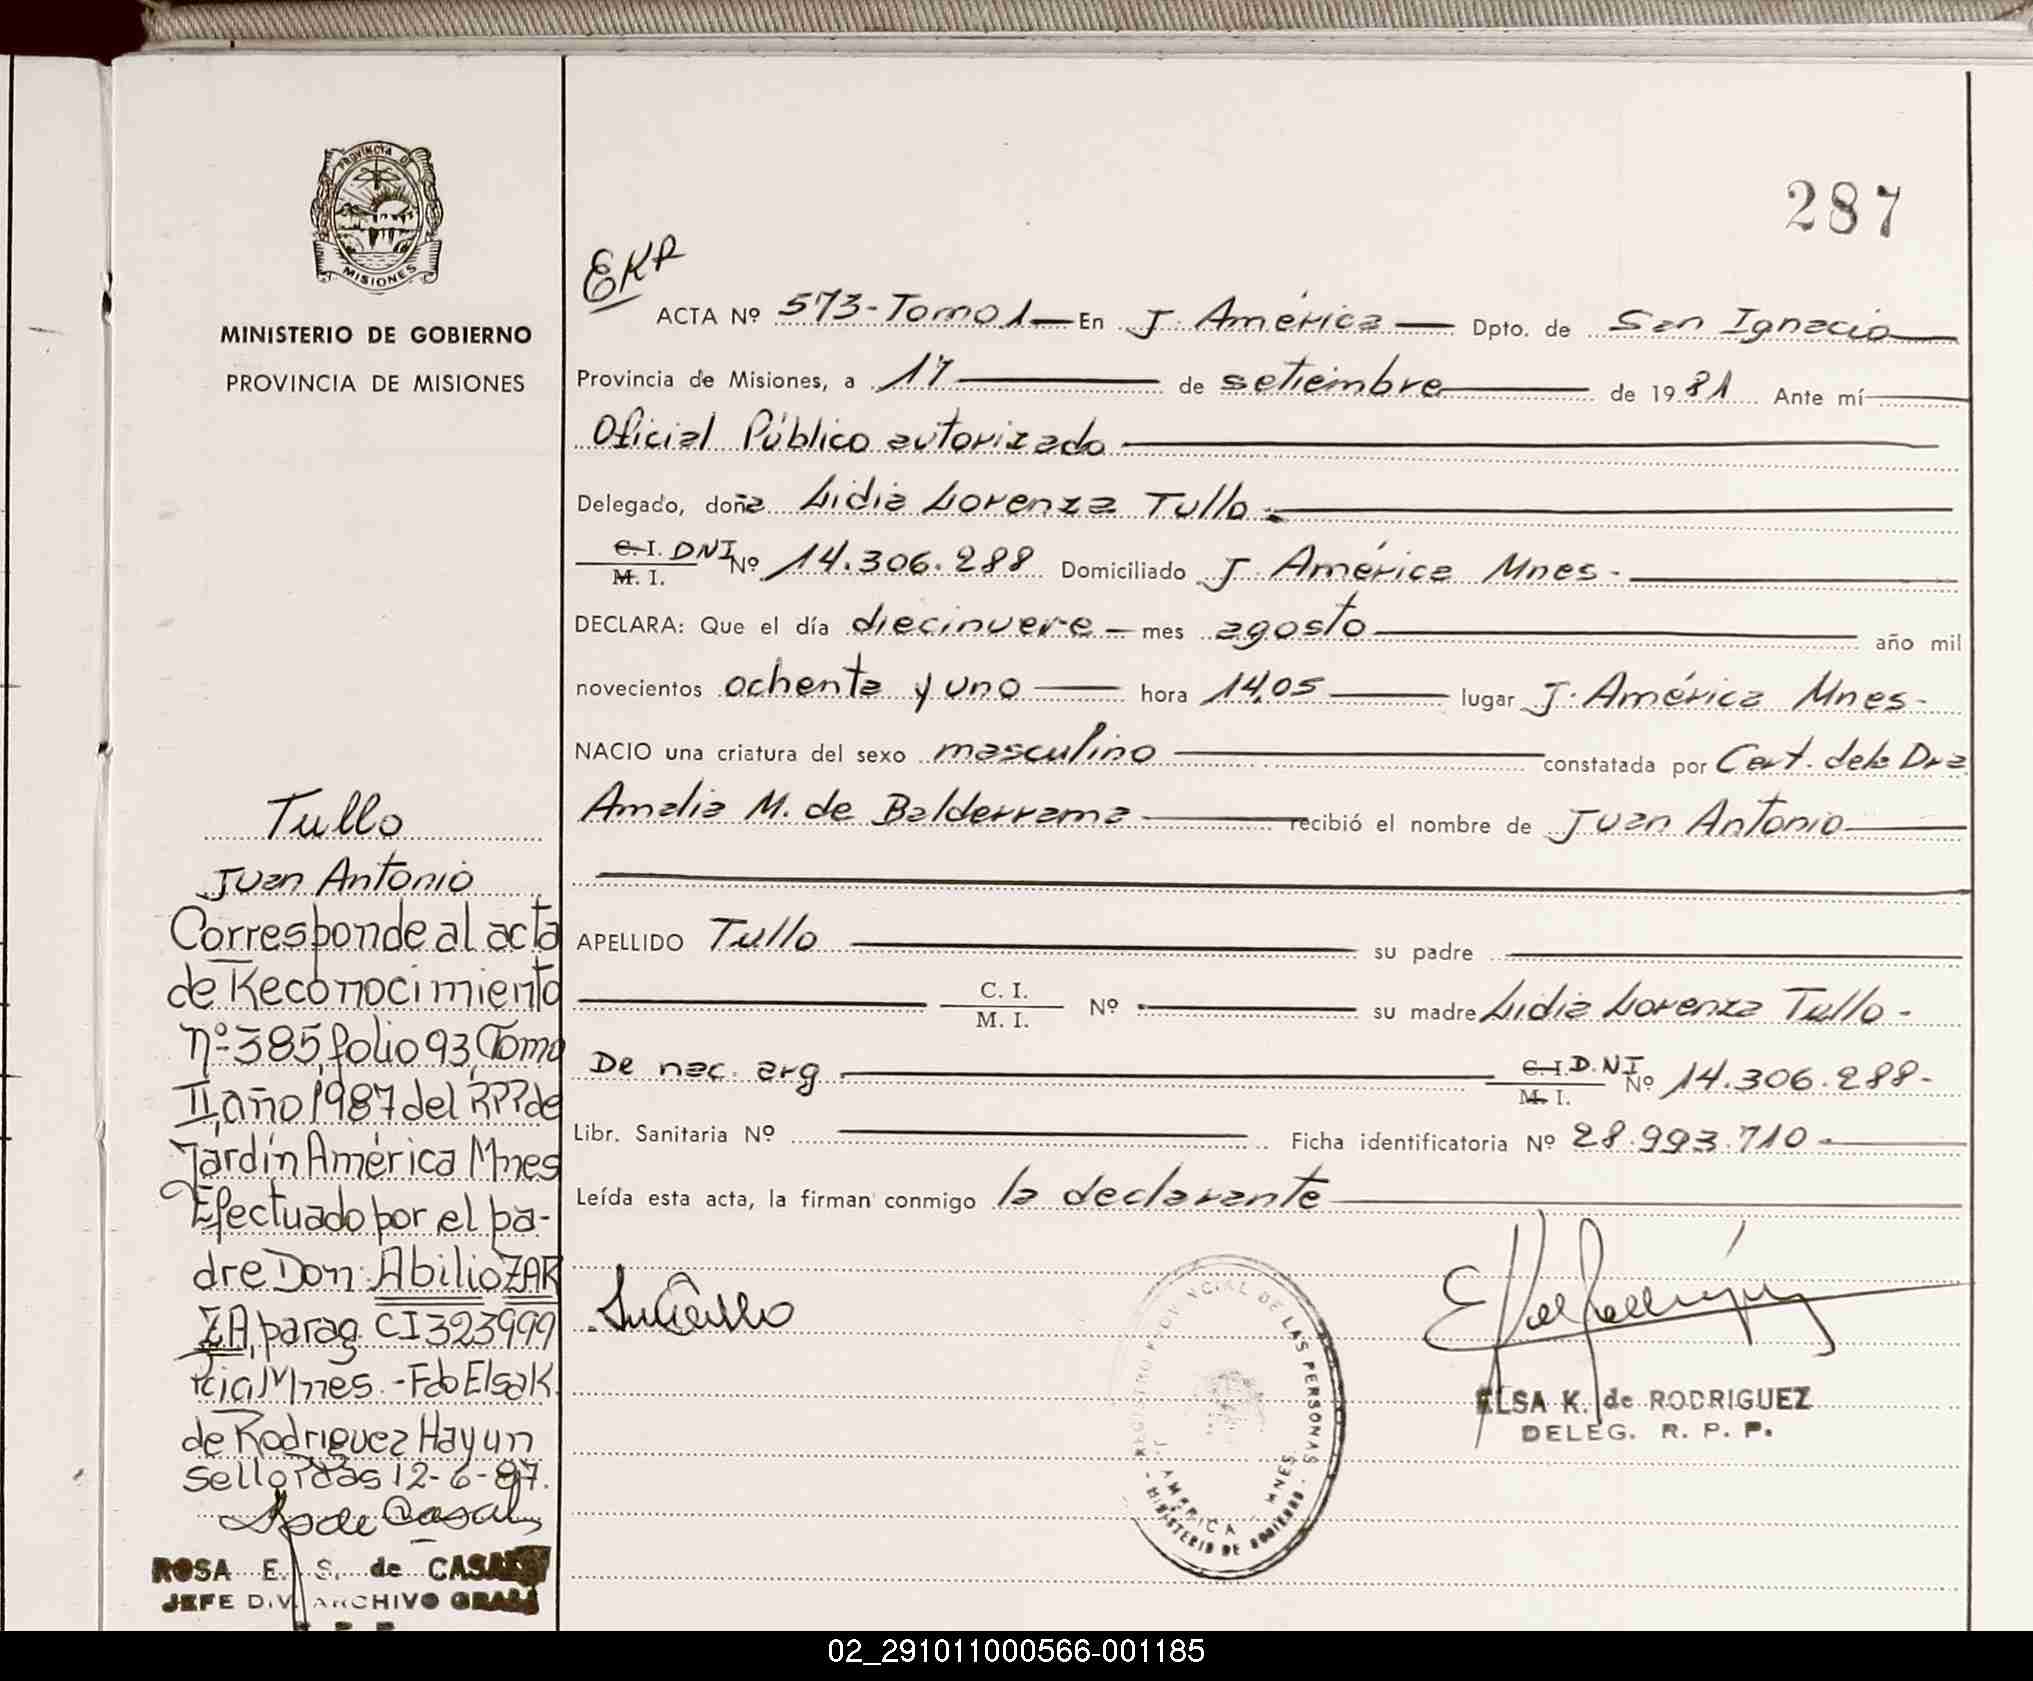 287
PROVINCIA DE
MISIONES
MINISTERIO DE GOBIERNO
PROVINCIA DE MISIONES
EKR
ACTA Nº 573-Tomo 1 En J. América Dpto. de San Ignacio
Provincia de Misiones, a 17 de setiembre de 1981 Ante mí
Oficial Público autorizado
Delegado, doña Lidia Lorenza Tullo.
C. I. DNI
M. I. Nº 14.306.288 Domiciliado J. América Mnes.
DECLARA: Que el día diecinueve mes agosto año mil
novecientos ochenta y uno hora 14,05 lugar J. América Mnes-
NACIO una criatura del sexo masculino constatada por Cert. dela Dra
Amalia M. de Balderrama recibió el nombre de Juan Antonio
APELLIDO Tullo su padre
C. I.
M. I. Nº su madre Lidia Lorenza Tullo -
De nac. arg C. I. D.NI
M. I. Nº 14.306.288-
Libr. Sanitaria Nº Ficha identificatoria Nº 28.993.710-
Leída esta acta, la firman conmigo la declarante
REGISTRO PROVINCIAL DE LAS PERSONAS
J. AMERICA MNES.
- MINISTERIO DE GOBIERNO -
ELSA K. de RODRIGUEZ
DELEG. R. P. P.
Tullo
Juan Antonio
Corresponde al acta
de Reconocimiento
nº 385, folio 93, Tomo
II, año 1987 del RPP de
Jardín América Mnes
Efectuado por el pa-
dre Don: Abilio ZAR
ZA, parag. CI 323999
Pcia Mnes.-Fdo Elsa K.
de Rodriguez Hay un
sello Pdas 12-6-87.
ROSA E. S. de CASALS
JEFE DIV. ARCHIVO GRAL
02_291011000566-001185